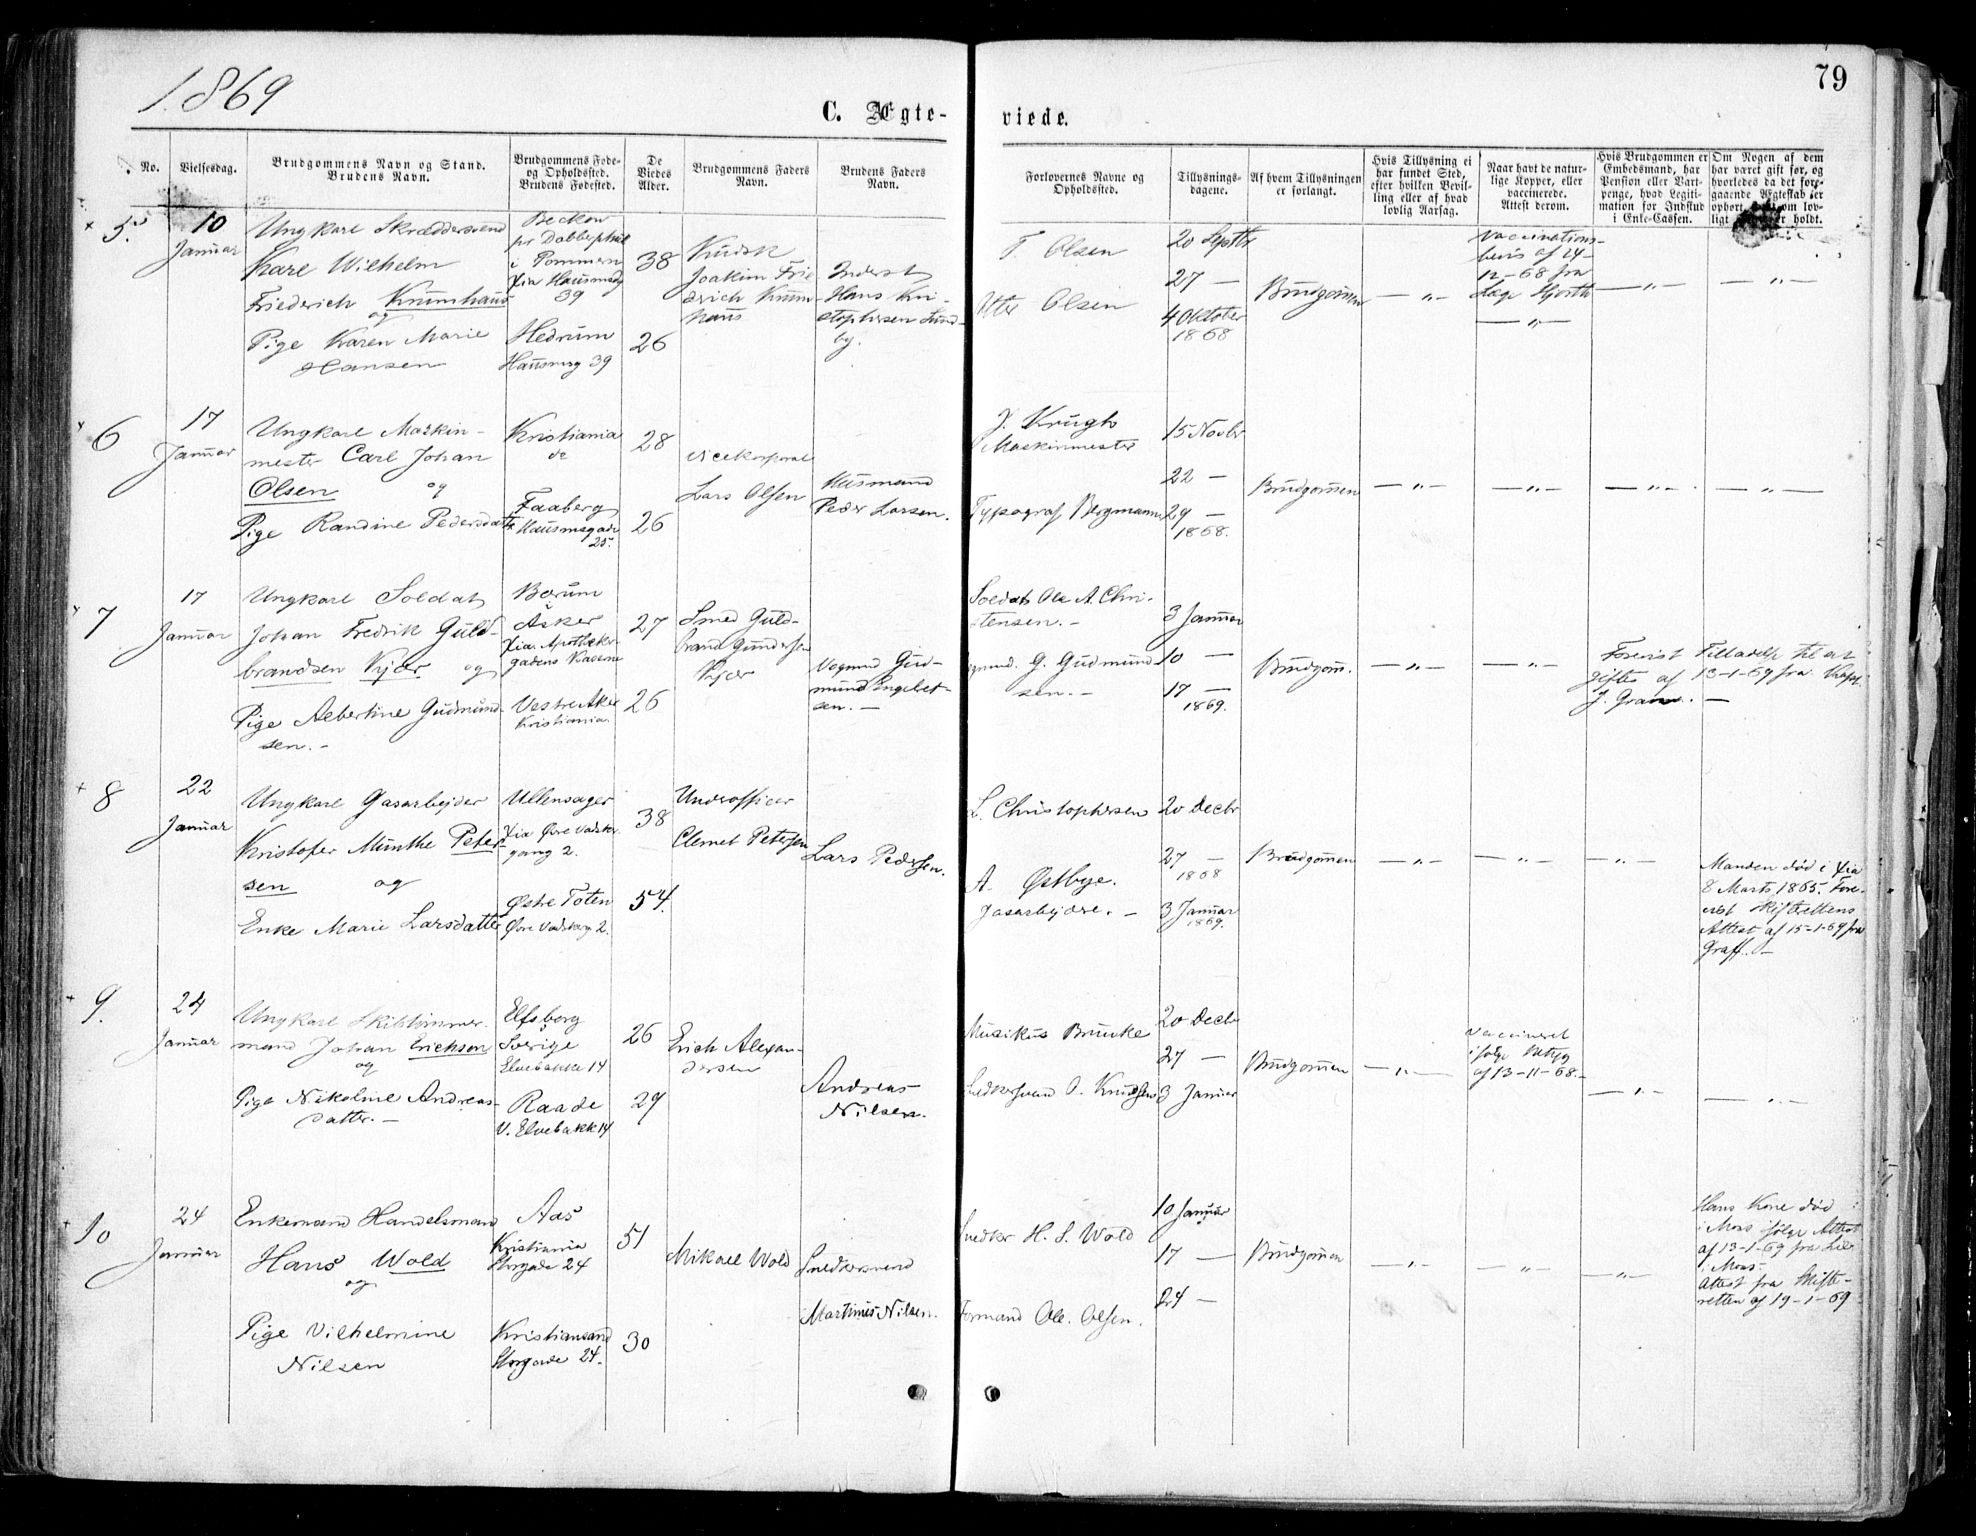 1869
79
C. Ægte-
viede.
No.
Vielsesdag.
Brudgommens Navn og Stand.
Brudens Navn.
Brudgommens Føde-
og Opholdssted.
Brudens Fødested.
De
Viedes
Alder.
Brudgommens Faders
Navn.
Brudens Faders
Navn.
Forlovernes Navne og
Opholdssted.
Tillysnings-
dagene.
Af hvem Tillysningen
er forlangt.
Hvis Tillysning ei
har fundet Sted,
efter hvilken Bevil-
ling eller af hvad
lovlig Aarsag.
Naar havt de natur-
lige Kopper, eller
vaccinerede.
Attest derom.
Hvis Brudgommen er
Embedsmand, har
Pension eller Vart-
penge, hvad Legiti-
mation for Indskud
i Enke-Cassen.
Om Nogen af dem
har været gift før, og
hvorledes da det fore-
gaaende Ægteskab er
ophørt, som lov-
ligt holdt.
5.
10
Januar
Ungkarl Skræddersvend
Karl Wilhelm
Friederich Krumhaus
og
Pige Karen Marie
Hansen
Beckow
pr Dobberphul
i Pommern
Xia Hausmsg
39
Hedrum
Hausmsg 39
38
26
Kudsk
Joakim Frie
drich Krum-
haus
Inderst
Hans Kri-
stophersen Sund-
by.
T. Olsen
Olsen
20 Septbr
27 —
4 Oktober
1868
Brudgommen
— „ —
Vaccinations-
bevis af 24-
12-68 fra
Læge Hjorth
— „ —
— „ —
— „ —
6
17
Januar
Ungkarl Maskin-
mester Carl Johan
Olsen og
Pige Randine Pedersdatter
Kristiania
do
Faaberg
Hausmsgade
25.
28
26
Vicekorporal
Lars Olsen
Husmand
Peder Larsen.
J. Krugh
Maskinmester
Typograf Bergmann
15 Novbr
22 —
29 —
1868.
Brudgommen
— „ —
— „ —
— „ —
— „ —
7
17
Januar
Ungkarl Soldat
Johan Fredrik Guld-
brandsen Kjær og
Pige Albertine Gudmund-
sen. —
Bærum
i
Asker
Xia. Apotheker-
gadens Kaserne
Vestre Aker
Kristiania.
27
26
Smed Guld-
brand Gundersen
Kjær
Vognmd Gud-
mund Engebret-
sen. —
Soldat Ole A. Chri-
stensen. —
Vognmd. G. Gudmund-
sen. —
3 Januar
10 —
17 —
1869.
Brudgom.
— „ —
— „ —
Forevist Tilladelse til at
giftes af 13-1-69 fra Kapt.
J. Gram. —
8
22
Januar
Ungkarl Gasarbejder
Kristofer Munthe Peter-
sen og
Enke Marie Larsdatter
Ullensager
Xia Øvre Vadsker-
gang 2.
Østre Toten
Øvre Vadskerg 2.
38
54.
Underofficer
Clemet Petersen
Lars Pedersen.
L. Christophersen
A. Østbye.
Gasarbejdere. —
20 Decbr
27 —
1868
3 Januar
1869.
Brudgommen
— „ —
— „ —
— „ —
Manden død i Xia
8 Marts 1865. Fore-
vist Skifterettens
Attest af 15-1-69 fra
Graff. —
9.
24
Januar
Ungkarl Skibstømmer-
mand Johan Erichson
og
Pige Nikoline Andreas-
datter. —
Elfsborg
Sverige
Elvebakke 14
Raade
V. Elvebakk 14
26
29
Erich Alexan-
dersen
Andreas
Nilsen.
Musikus Bruuke
Snedkersvend O. Knudsen
20 Decbr
27 —
3 Januar
Brudgommen
— „ —
Vaccineret
ifølge Betyg
af 13-11-68.
— „ —
— „ —
10
24
Januar
Enkemand Handelsmand
Hans Wold
og
Pige Vilhelmine
Nilsen
Aas
Kristiania
Storgade 24
Kristiansand
Storgade 24.
51
30
Mikael Wold
Snedkersvend
Martinus Nilsen.
Snedker H. S. Wold
Formand Ole Olsen.
10 Januar
17 —
24 —
Brudgommen
— „ —
— „ —
— „ —
Hans Kone død
i Moss ifølge Attest
af 13-1-69 fra
i Moss.
Attest fra Skifte-
retten af 19-1-69